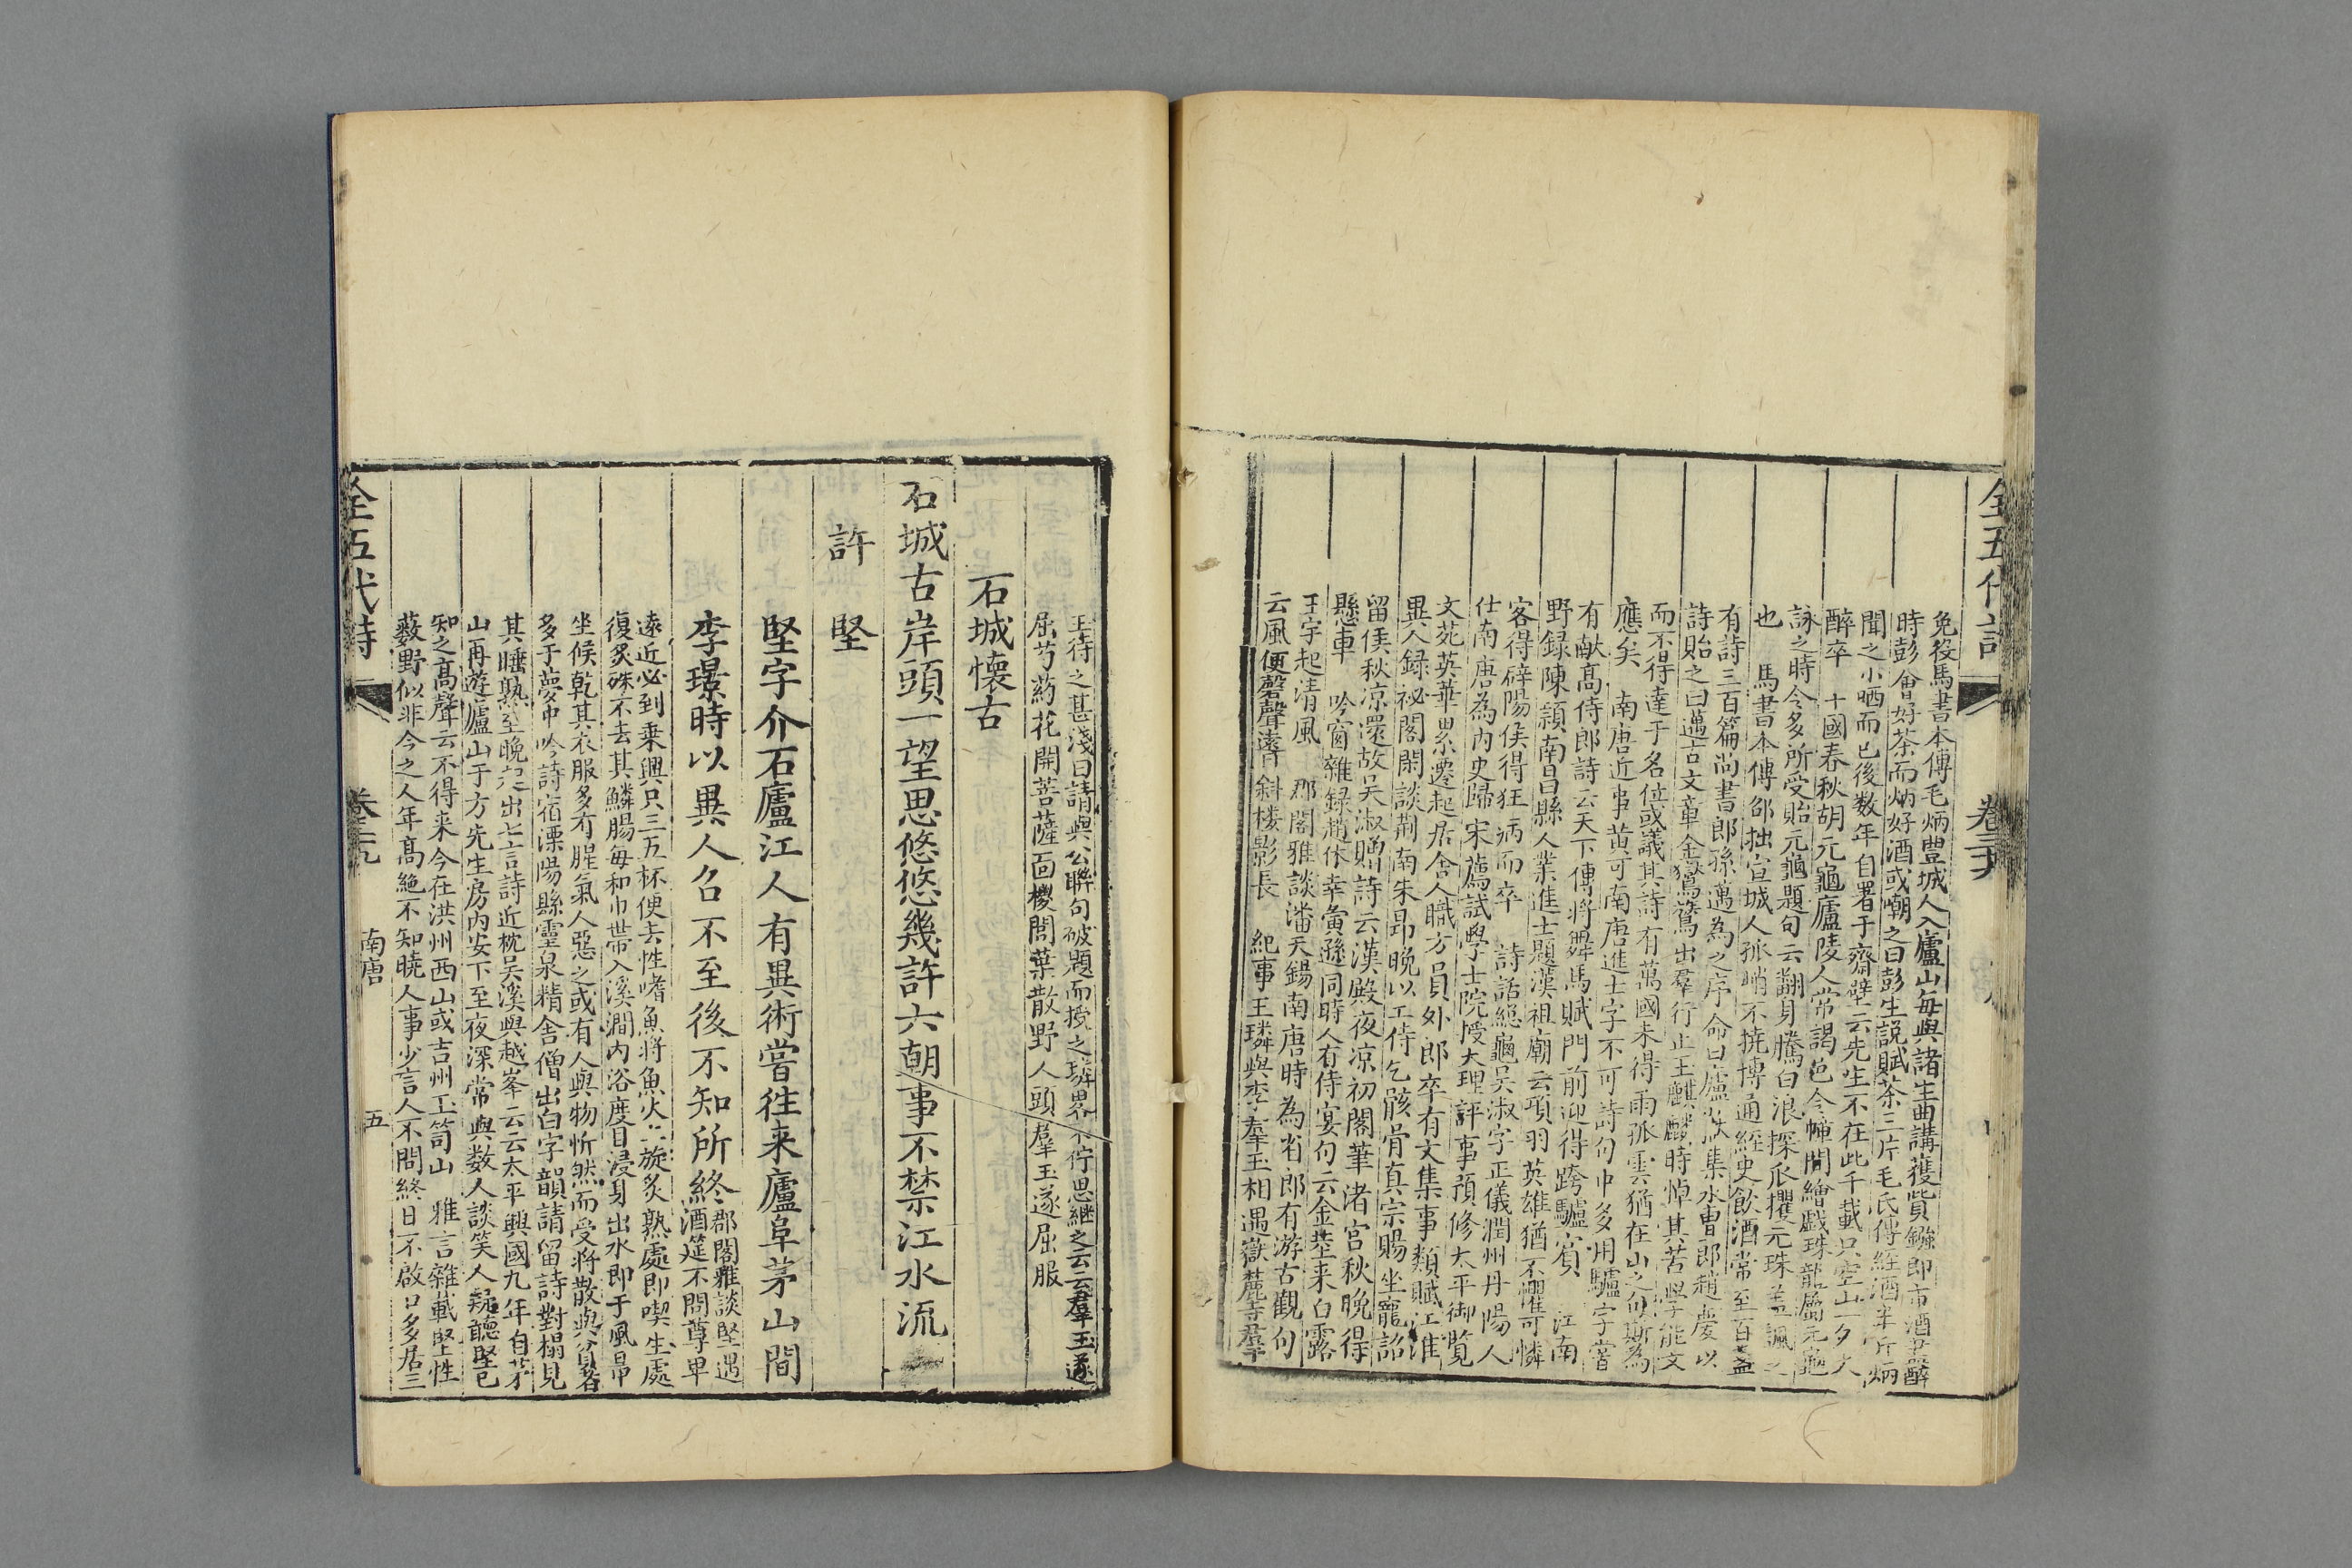 全五代詩
卷三十六
免役馬書本傳毛炳豐城人入廬山每與諸生曲講獲貲鏹即市酒盡醉
時彭會好茶而炳好酒或嘲之曰彭生説賦茶三片毛氏傳經酒半斤炳
聞之小哂而已後数年自署于齋壁云先生不在此千載只空山一夕大
醉卒　十國春秋胡元龜廬陵人常謁邑令幛間繪戲珠龍屬元龜
詠之時令多所受貽元龜題句云翻身騰白浪探爪攫元珠盖諷之
也　馬書本傳邵拙宣城人孤峭不撓博通經史飲酒常至百盞
有詩三百篇尚書郎孫邁為之序命曰廬岳集水曹郎趙慶以
詩貽之曰邁古文章金鸑鷟出羣行止玉麒麟時悼其苦學能文
而不得達于名位或議其詩有萬國未得雨孤雲猶在山之句斯為
應矣　南唐近事黄可南唐進士字不可詩句中多用驢字嘗
有献髙侍郎詩云天下傳將舞馬賦門前迎得跨驢賓　江南
野録陳穎南昌縣人業進士題漢祖廟云項羽英雄猶不懼可憐
客得辟陽侯得狂病而卒　詩話緫龜吴淑字正儀潤州丹陽人
仕南唐為内史歸宋薦試學士院授大理評事預修太平御覧
文苑英華累遷起居舍人職方員外郎卒有文集事類賦江淮
異人録祕閣閑談荆南朱昂晚以工侍乞骸骨真宗賜坐寵詔
留俟秋凉還故吴淑贈詩云漢殿夜凉初閣筆渚宫秋晚得
懸車　吟窗雜録趙休幸夤遜同時人有侍宴句云金莖来白露
玉宇起清風　郡閣雅談潘天錫南唐時為省郎有游古觀句
云風便磬聲遠日斜楼影長　紀事王璘與李羣玉相遇嶽麓寺羣
玉待之甚淺曰請與公聯句破題而授之璘畧不佇思継之云云羣玉遂
屈芍药花開菩薩面椶閭葉散野人頭羣玉遂屈服
石城懷古
石城古岸頭一望思悠悠幾許六朝事不禁江水流
許　堅
堅字介石廬江人有異術嘗徃来廬阜茅山間
李璟時以異人召不至後不知所終郡閣雅談堅遇
酒筵不問尊卑
遠近必到乗興只三五杯便去性嗜魚將魚火上旋炙熟處即喫生處
復炙殊不去其鱗腸每和巾世帶入溪澗内浴度日浸身出水即于風帛
坐候乾其衣服多有腥氣人惡之或有人與物忻然而受將散與貧者
多于夢中吟詩宿溧陽縣靈泉精舍僧出白字韻請留詩對榻見
其睡熟至晚起出七言詩近枕吴溪與越峯云云太平興國九年自茅
山再遊廬山于方先生房内安下至夜深常與数人談笑人疑聽堅已
知之髙聲云不得来今在洪州西山或吉州玉笥山　雅言雜載堅性
蘞野似非今之人年髙絶不知曉人事少言人不問終日不啟口多居三
全五代詩
卷三十六
南唐
五